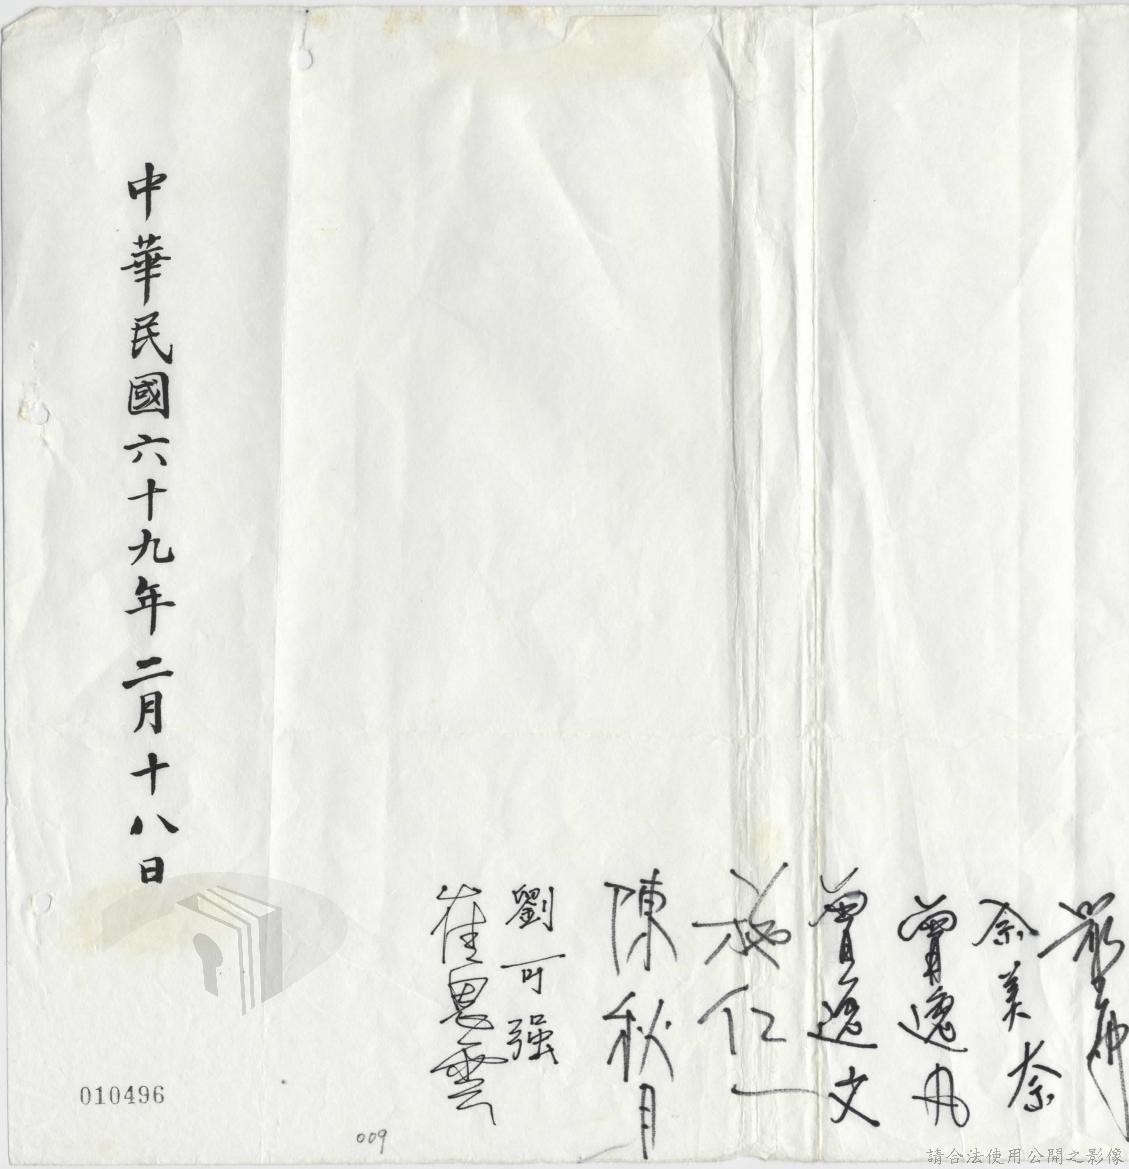 余美奈
曾逸文
施仁一
陳秋月
劉可强
崔恩雲
中華民國六十九年二月十八日
010496
009
請合法使用公開之影像